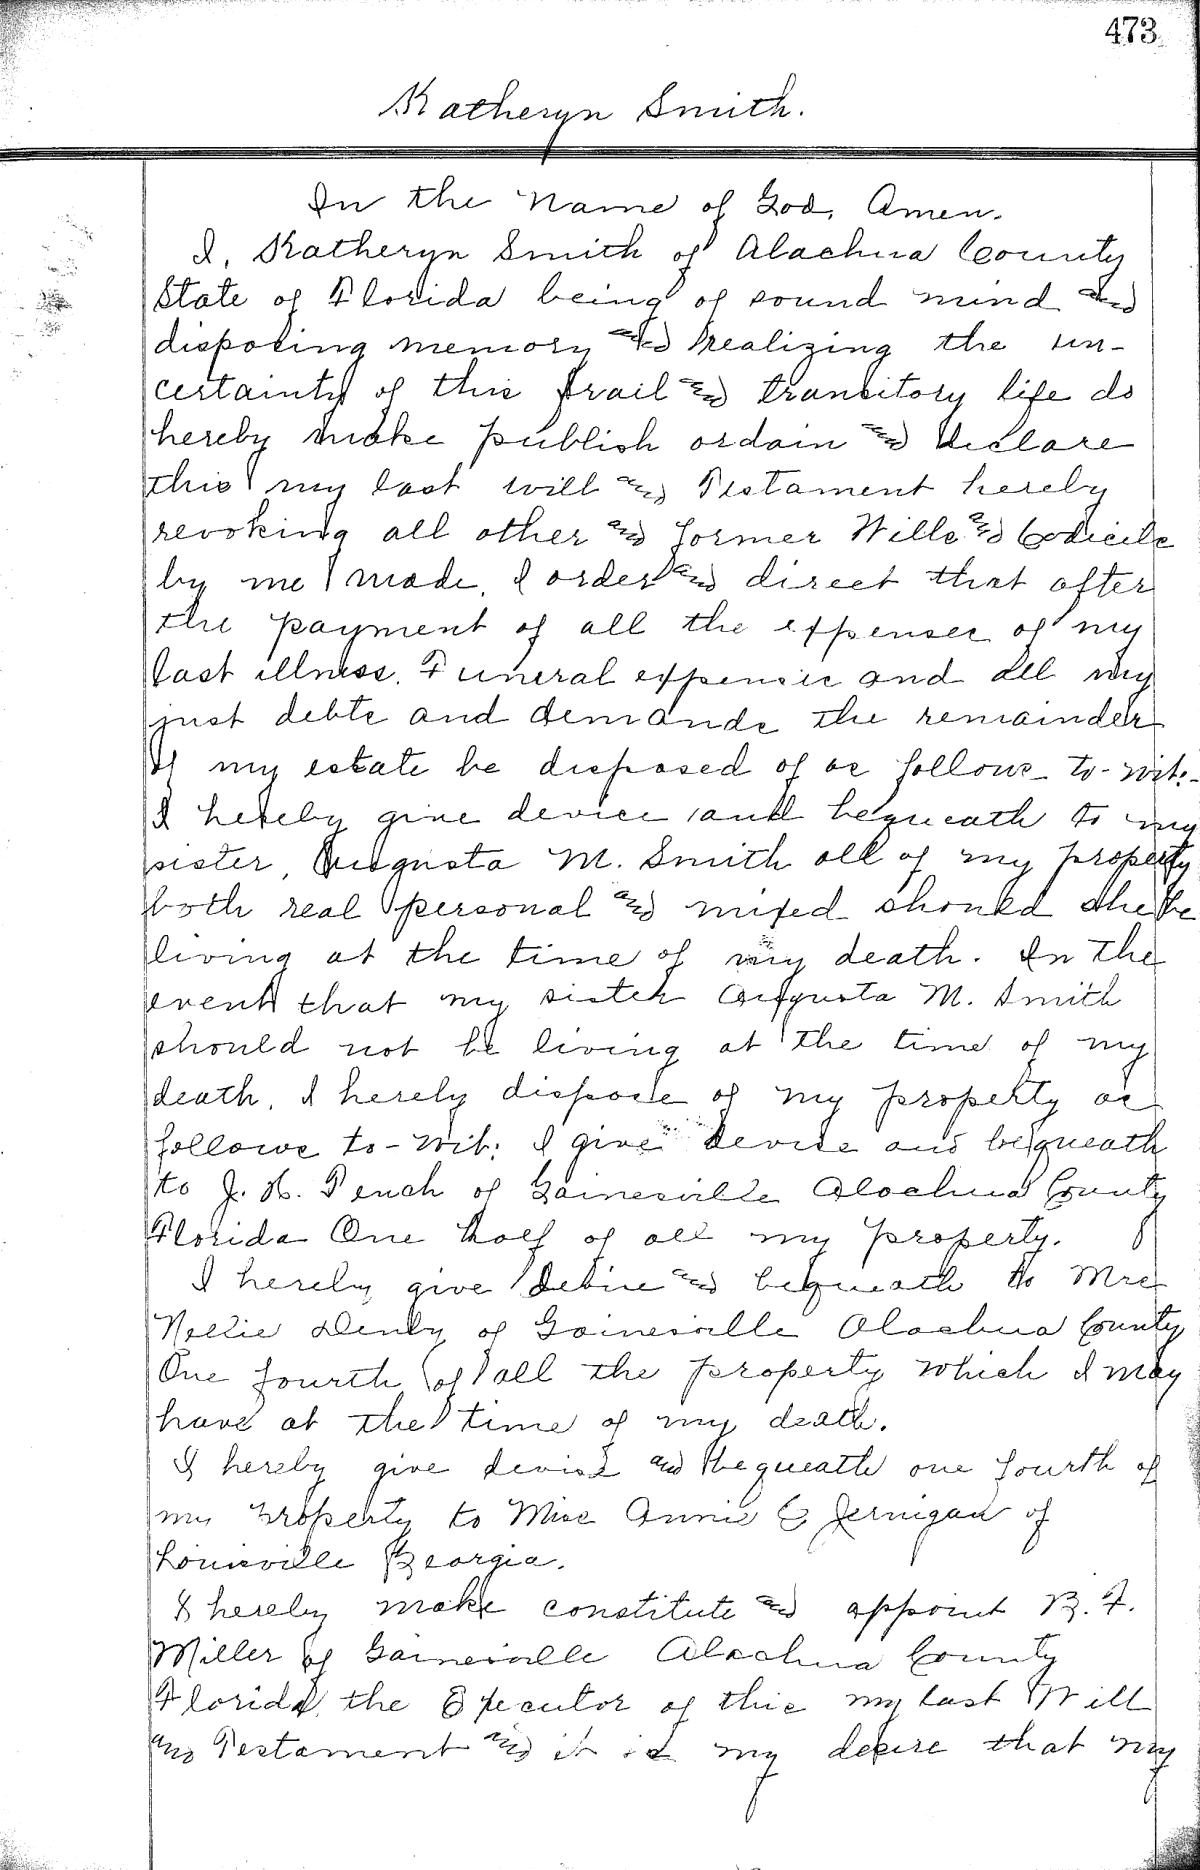 473
Katheryn Smith.
In the Name of God, Amen.
I, Katheryn Smith of Alachua County
State of Florida being of sound mind and
disposing memory and realizing the un-
certainty of this frail and transitory life do
hereby make publish ordain and declare
this my last will and Testament hereby
revoking all other and former Wills and Codicils
by me made. I order and direct that after
the payment of all the expenses of my
last illness. Funeral expensis and all my
just debts and demands the remainder
of my estate be disposed of as follows to-wit:-
I hereby give device and bequeath to my
sister, Augusta M. Smith all of my property
both real personal and mixed should she be
living at the time of my death. In the
event that my sister Augusta M. Smith
should not be living at the time of my
death, I herely dispose of my property as
follows to-wit: I give devise and bequeath
to J. H. Pench of Gainesville Alachua County
Florida One half of all my property.
I hereby give devise and bequeath to Mrs
Nellie Denby of Gainesville Alachua County
One fourth of all the property which I may
have at the time of my death.
I hereby give devise and bequeath one fourth of
my property to Miss Annie E Jernigan of
Louisville Georgia.
I hereby make constitute and appoint B. F.
Miller of Gainesville Alachua County
Florida, the Executor of this my last Will
and Testament and it is my desire that my